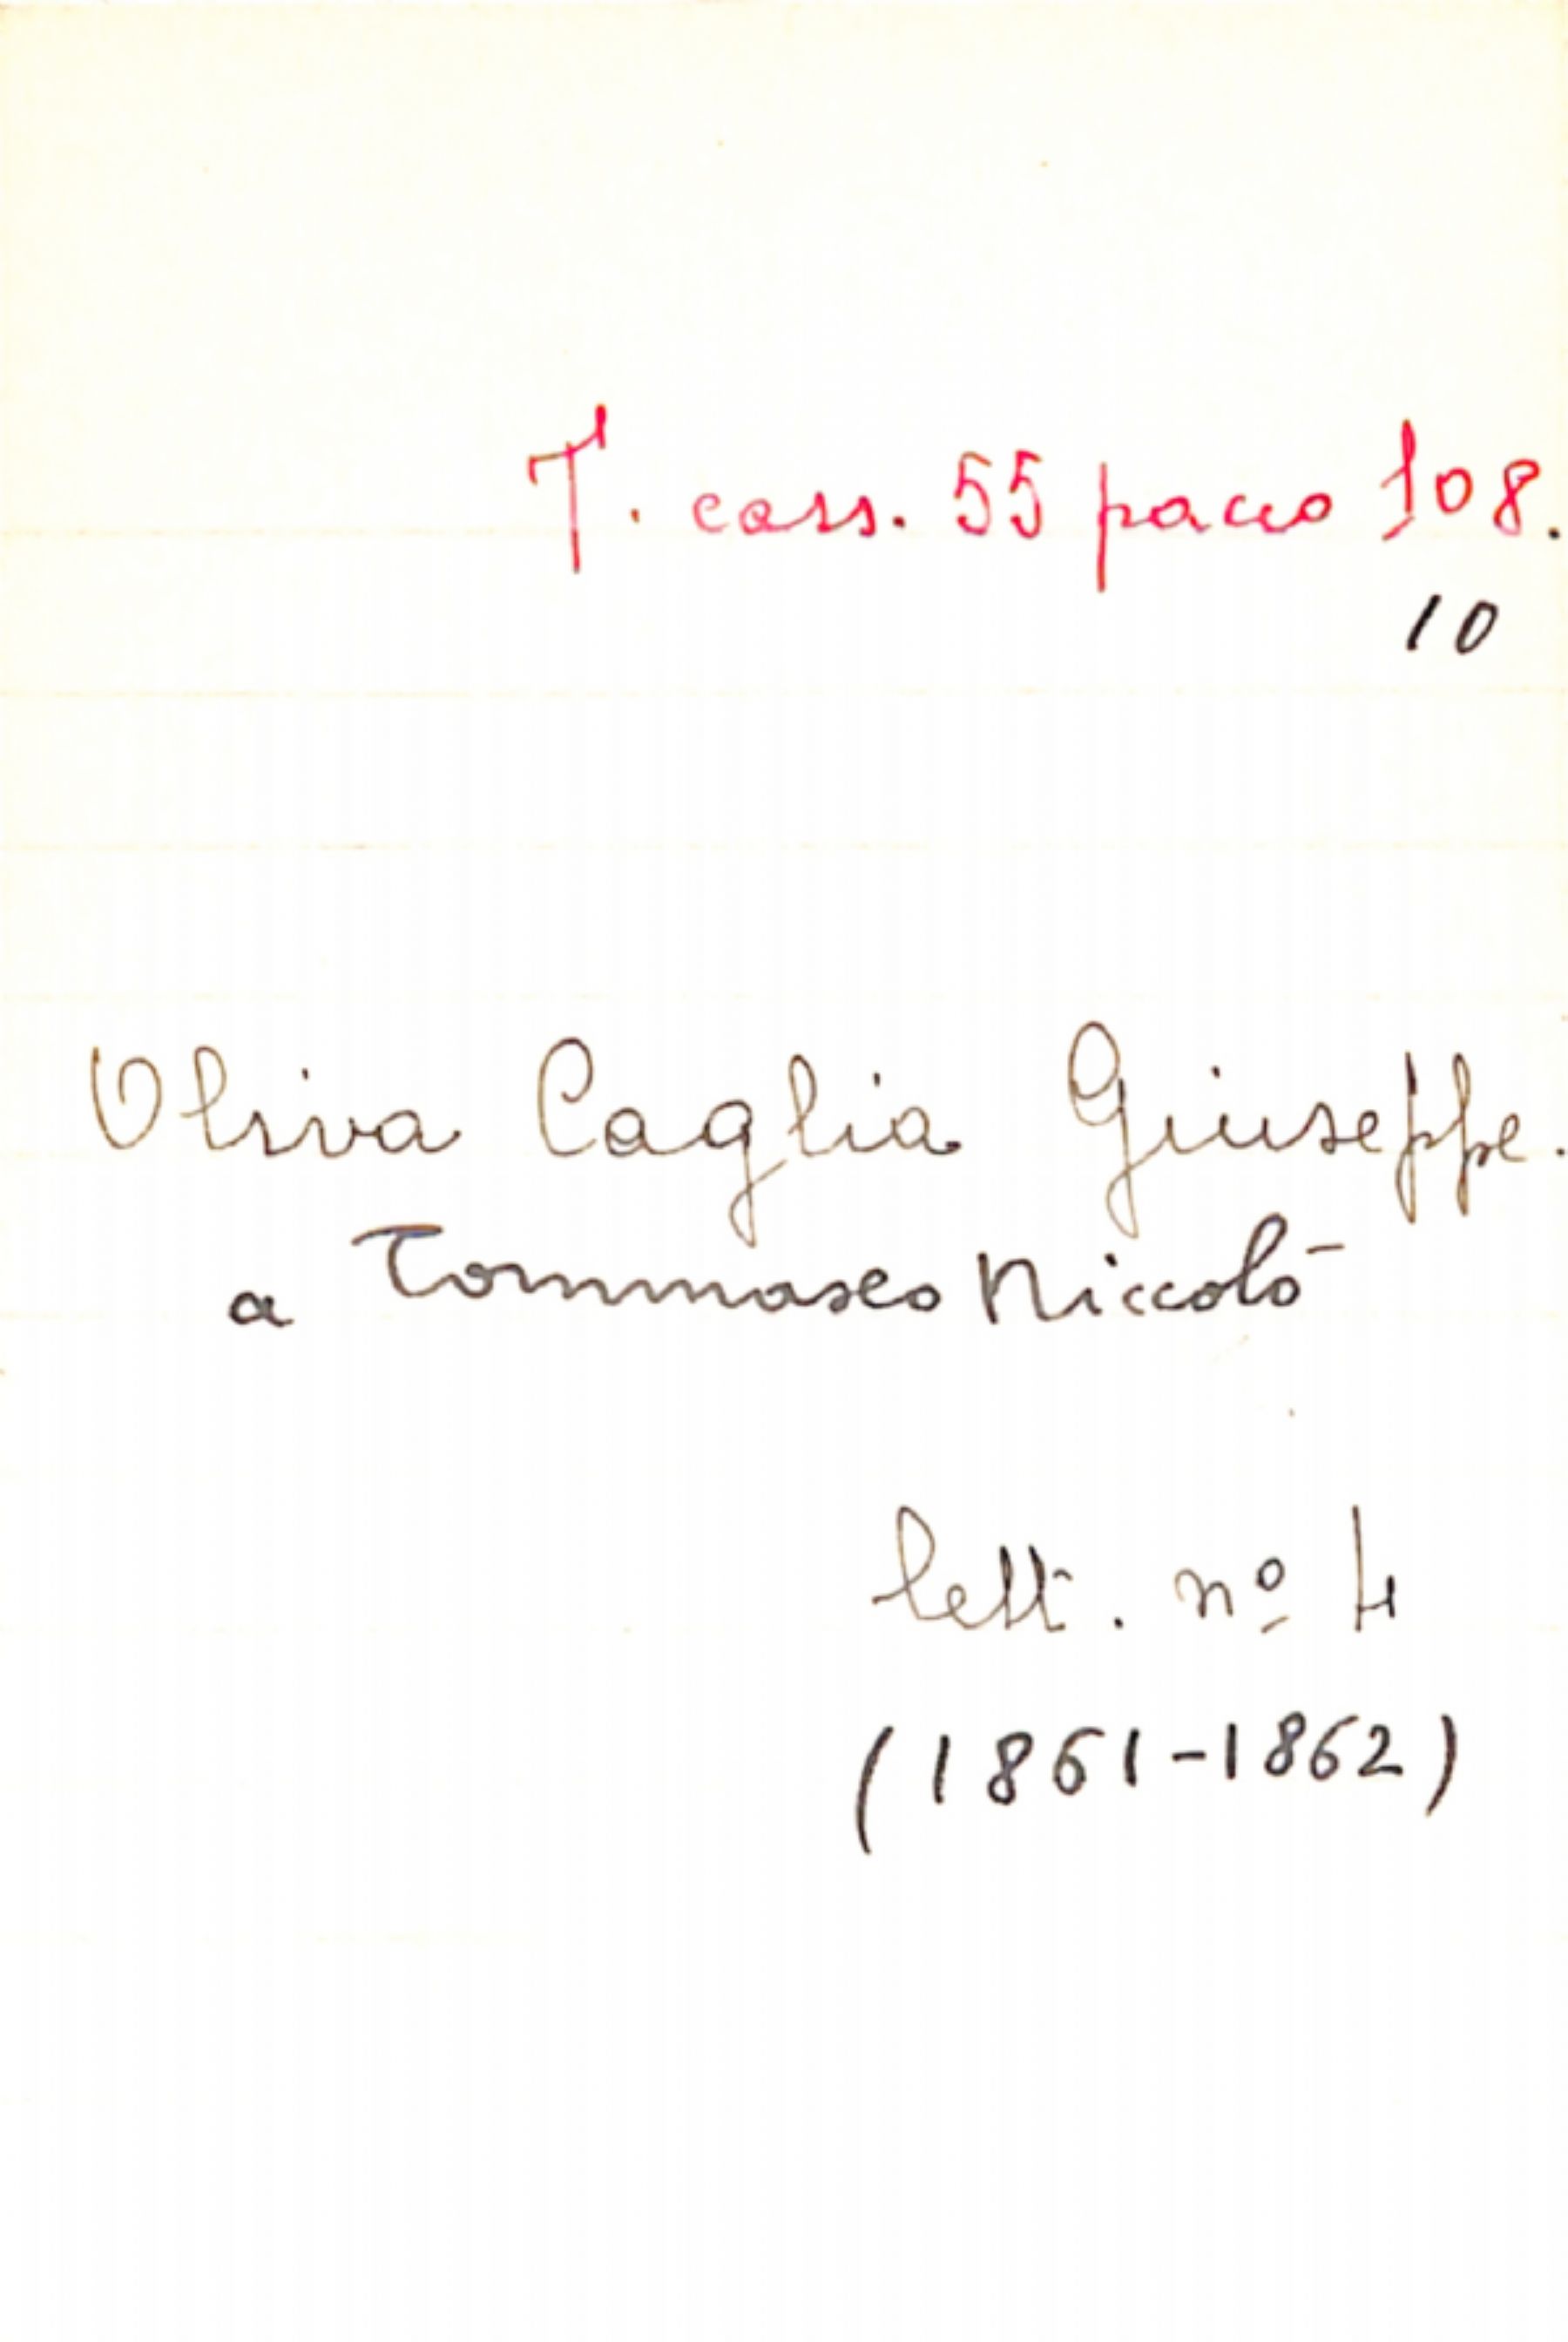 T. cass. 55 pacco 108.
10
Oliva Caglia Giuseppe.
a Tommaseo Niccolò
lett. nº 4
(1861-1862)